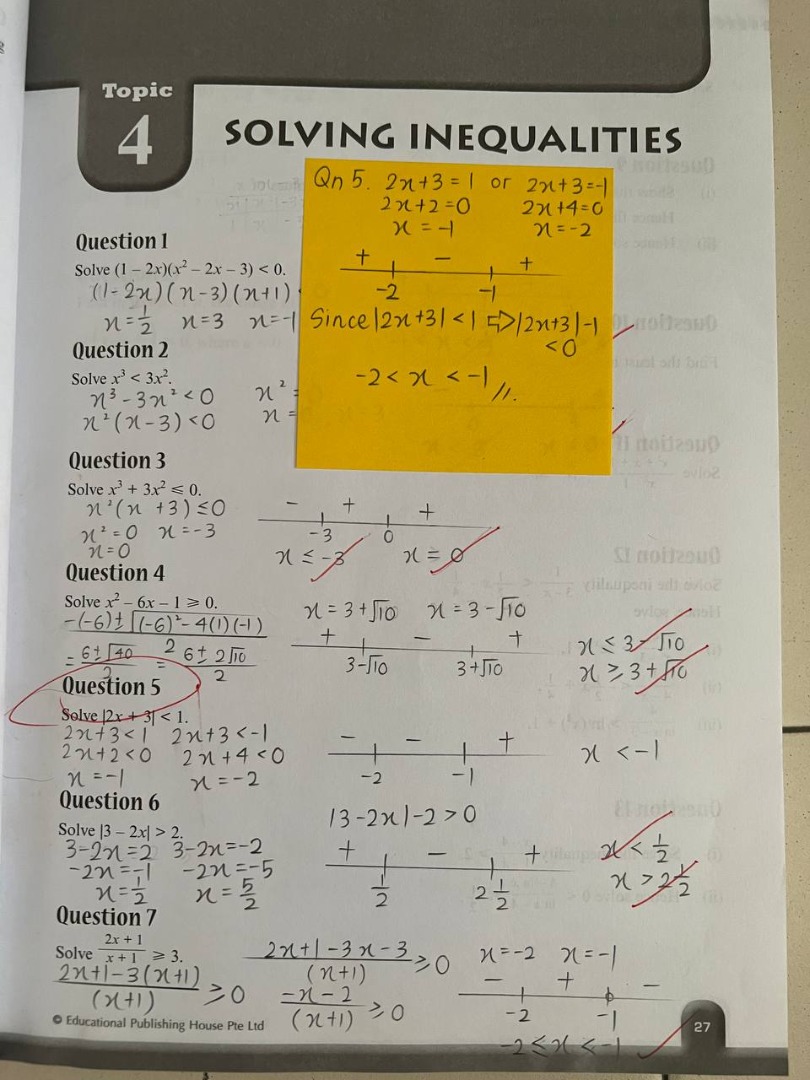 Topic
4
SOLVING INEQUALITIES
Qn 5. 2x+3 = 1 or 2x+3=-1
2x+2=0 2x+4=0
x = -1 x = -2
+ - +
-2 -1
Since |2x+3| < 1 ⇒ |2x+3|-1
<0
-2 < x < -1 //.
Question 1
Solve (1 – 2x)(x² – 2x – 3) < 0.
(1-2x)(x-3)(x+1)
x=1/2 x=3 x=-1
Question 2
Solve x³ < 3x².
x³ - 3x² < 0 x² =
x²(x-3) <0 x =
Question 3
Solve x³ + 3x² ⩽ 0.
x²(x +3) ≤0
x² = 0 x = -3
x=0
- + +
-3 0
x ≤ -3 x = 0
Question 4
Solve x² – 6x – 1 ⩾ 0.
-(-6)± √(-6)²- 4(1)(-1)
2
= 6±√40 / 2 = 6± 2√10 / 2
x = 3+√10 x = 3-√10
+ - +
3-√10 3+√10
x ≤ 3-√10
x ≥ 3+√10
Question 5
Solve |2x + 3| < 1.
2x+3<1 2x+3<-1
2x+2<0 2x+4<0
x = -1 x = -2
- - +
-2 -1
x < -1
Question 6
Solve |3 – 2x| > 2.
3-2x=2 3-2x=-2
-2x=-1 -2x=-5
x=1/2 x = 5/2
|3-2x|-2 >0
+ - +
1/2 2 1/2
x < 1/2
x > 2 1/2
Question 7
Solve (2x + 1)/(x + 1) ⩾ 3.
2x+1-3(x+1) / (x+1) ≥ 0
2x+1-3x-3 / (x+1) ≥0
-x-2 / (x+1) ≥ 0
x=-2 x=-1
- + -
-2 -1
-2≤x <-1
© Educational Publishing House Pte Ltd
27